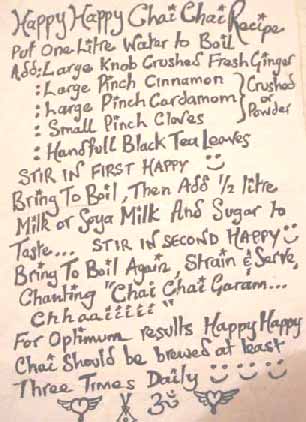 Happy Happy Chai Chai Recipe
Put One Litre Water to Boil
Add: Large Knob Crushed Fresh Ginger
: Large Pinch Cinnamon
: Large Pinch Cardamom } Crushed or Powder
: Small Pinch Cloves
: Handfull Black Tea Leaves
STIR IN FIRST HAPPY
Bring To Boil, Then Add 1/2 litre
Milk or Soya Milk And Sugar to
Taste... STIR IN SECOND HAPPY
Bring To Boil Again, Strain & Serve,
Chanting "Chai Chai Garam...
Chhaaiiiii"
For Optimum results Happy Happy
Chai Should be brewed at least
Three Times Daily
ॐ